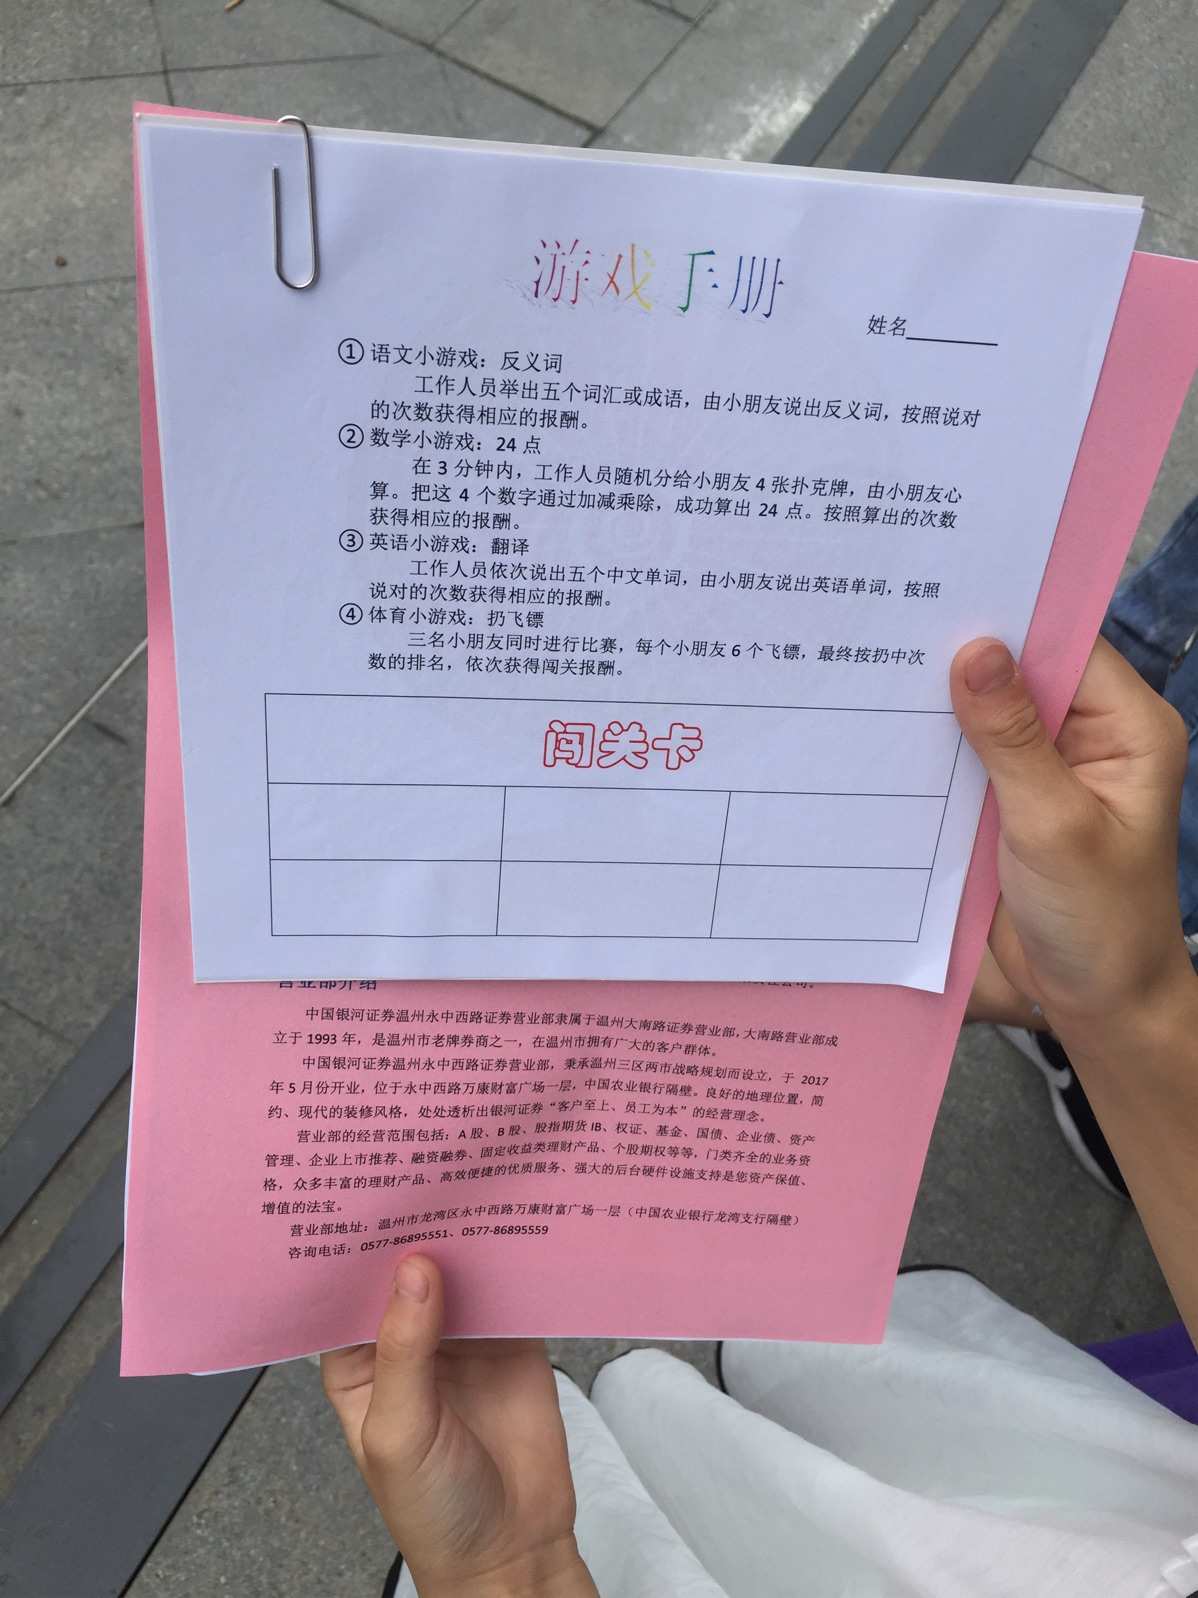 游戏手册
姓名
① 语文小游戏：反义词
工作人员举出五个词汇或成语，由小朋友说出反义词，按照说对
的次数获得相应的报酬。
② 数学小游戏：24 点
在 3 分钟内，工作人员随机分给小朋友 4 张扑克牌，由小朋友心
算。把这 4 个数字通过加减乘除，成功算出 24 点。按照算出的次数
获得相应的报酬。
③ 英语小游戏：翻译
工作人员依次说出五个中文单词，由小朋友说出英语单词，按照
说对的次数获得相应的报酬。
④ 体育小游戏：扔飞镖
三名小朋友同时进行比赛，每个小朋友 6 个飞镖，最终按扔中次
数的排名，依次获得闯关报酬。
闯关卡
营业部介绍
中国银河证券温州永中西路证券营业部隶属于温州大南路证券营业部，大南路营业部成
立于 1993 年，是温州市老牌券商之一，在温州市拥有广大的客户群体。
中国银河证券温州永中西路证券营业部，秉承温州三区两市战略规划而设立，于 2017
年 5 月份开业，位于永中西路万康财富广场一层，中国农业银行隔壁。良好的地理位置，简
约、现代的装修风格，处处透析出银河证券“客户至上、员工为本”的经营理念。
营业部的经营范围包括：A 股、B 股、股指期货 IB、权证、基金、国债、企业债、资产
管理、企业上市推荐、融资融券、固定收益类理财产品、个股期权等等，门类齐全的业务资
格，众多丰富的理财产品、高效便捷的优质服务、强大的后台硬件设施支持是您资产保值、
增值的法宝。
营业部地址：温州市龙湾区永中西路万康财富广场一层（中国农业银行龙湾支行隔壁）
咨询电话：0577-86895551、0577-86895559